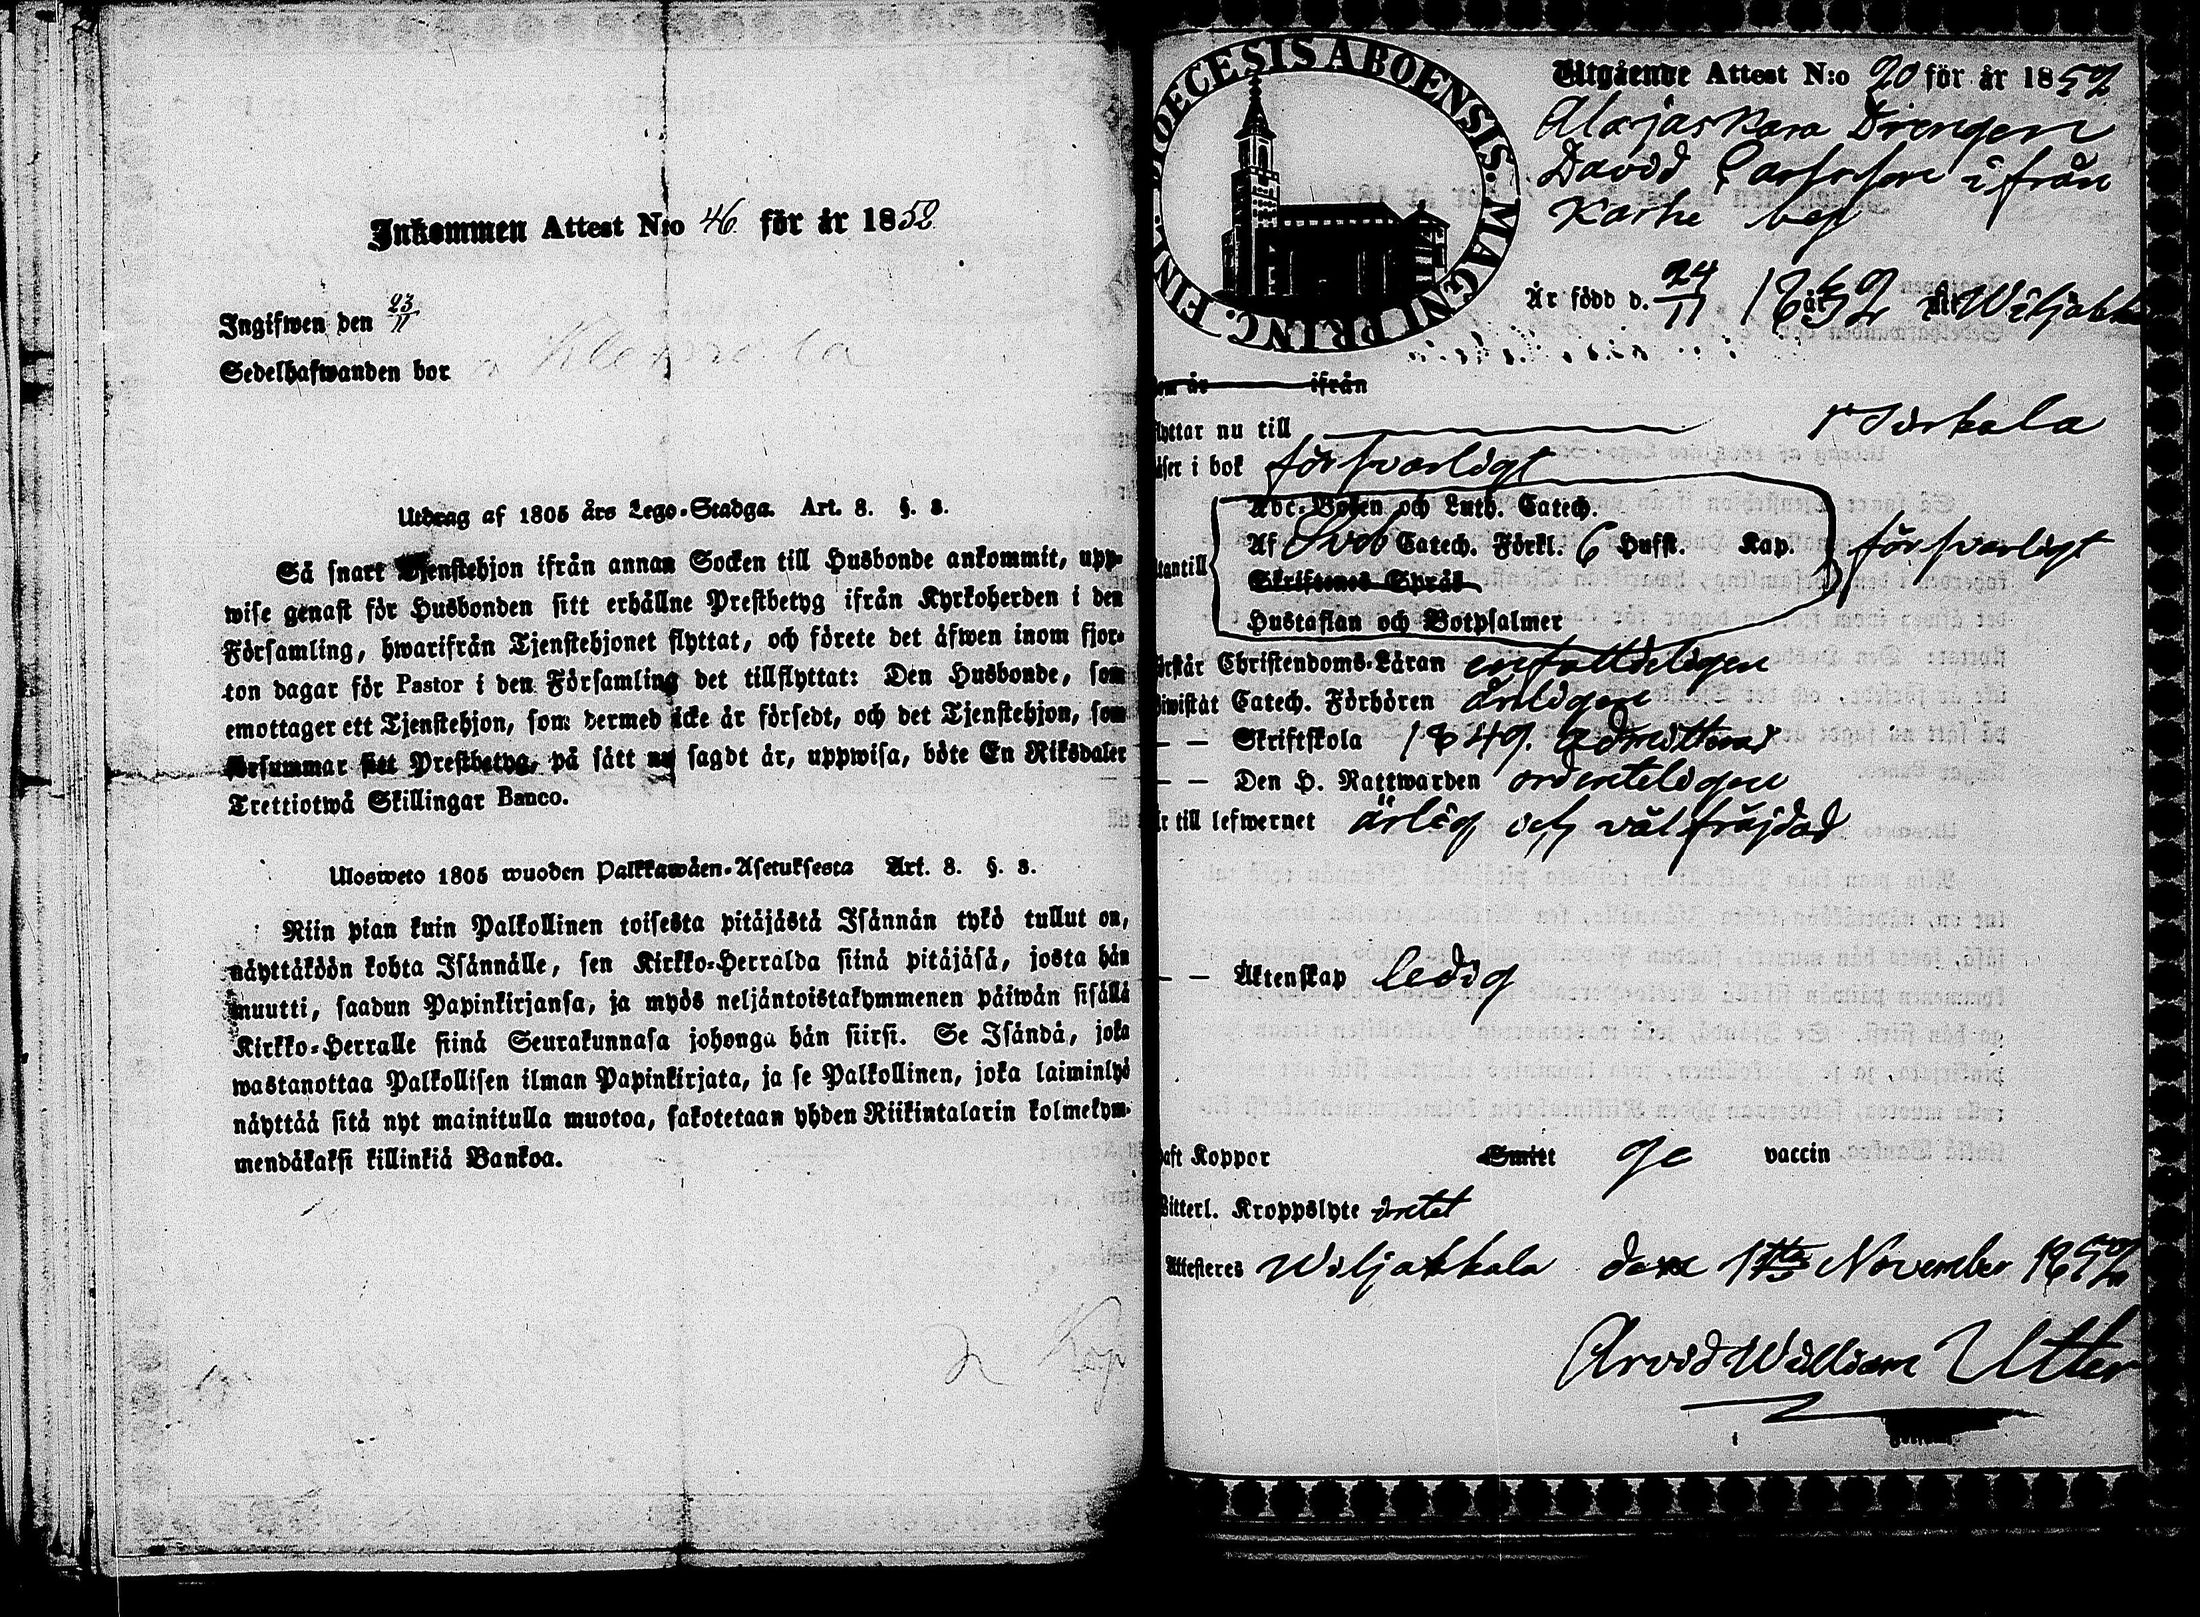 Inkommen Attest N:o 46 för år 1852
Ingifwen den 23/11
Sedelhafwanden bor
Utdrag af 1805 års Lego-Stadga. Art. 8. §. 3.
Så snart Tjenstehjon ifrån annan Socken till Husbonde ankommit, upp-
wise genast för Husbonden sitt erhållne Prestbetyg ifrån Kyrkoherden i den
Församling, hwarifrån Tjenstehjonet flyttat, och förete det äfwen inom fjor-
ton dagar för Pastor i den Församling det tillflyttat: Den Husbonde, som
emottager ett Tjenstehjon, som dermed icke är försedt, och det Tjenstehjon, som
försummar sitt Prestbetyg, på sätt nu sagdt är, uppwisa, böte En Riksdaler
Trettiotwå Skillingar Banco.
Ulosweto 1805 wuoden Palkkawäen-Asetuksesta Art. 8. §. 3.
Niin pian kuin Palkollinen toisesta pitäjästä Isännän tykö tullut on,
näyttäköön kohta Isännälle, sen Kirkko-Herralda siinä pitäjäsä, josta hän
muutti, saadun Papinkirjansa, ja myös neljäntoistakymmenen päiwän sisällä
Kirkko-Herralle siinä Seurakunnasa johonga hän siirsi. Se Isändä, joka
wastanottaa Palkollisen ilman Papinkirjata, ja se Palkollinen, joka laiminlyö
näyttää sitä nyt mainitulla muotoa, sakotetaan yhden Riikintalarin kolmekym-
mendäkaksi killinkiä Bankoa.
DIOECESIS ABOENSIS. MAGNI PRINC. FINL.
Utgående Attest N:o 20 för år 1852
Drengen
David ifrån
Karhe by
Är född d. 24/11
är ifrån
flyttar nu till
läser i bok försvarligt
Abc-Boken och Luth. Catech.
Af Sveb Catech. Förkl. 6 Hufst. Kap. försvarligt
utantill
Skriftenes Språk
Hustaflan och Botpsalmer
Förstår Christendoms-Läran enfalldeligen
Biwistat Catech. Förhören årligen
— — Skriftskola 1849. admitterad
— — Den H. Nattwarden ordenteligen
Är till lefwernet ärlig och välfräjdad
— — Äktenskap ledig
Haft Koppor Smitt ge vaccin
Witterl. Kroppslyte intet
Attesteres Wiljakkala den November 1852
Arvid William Utter